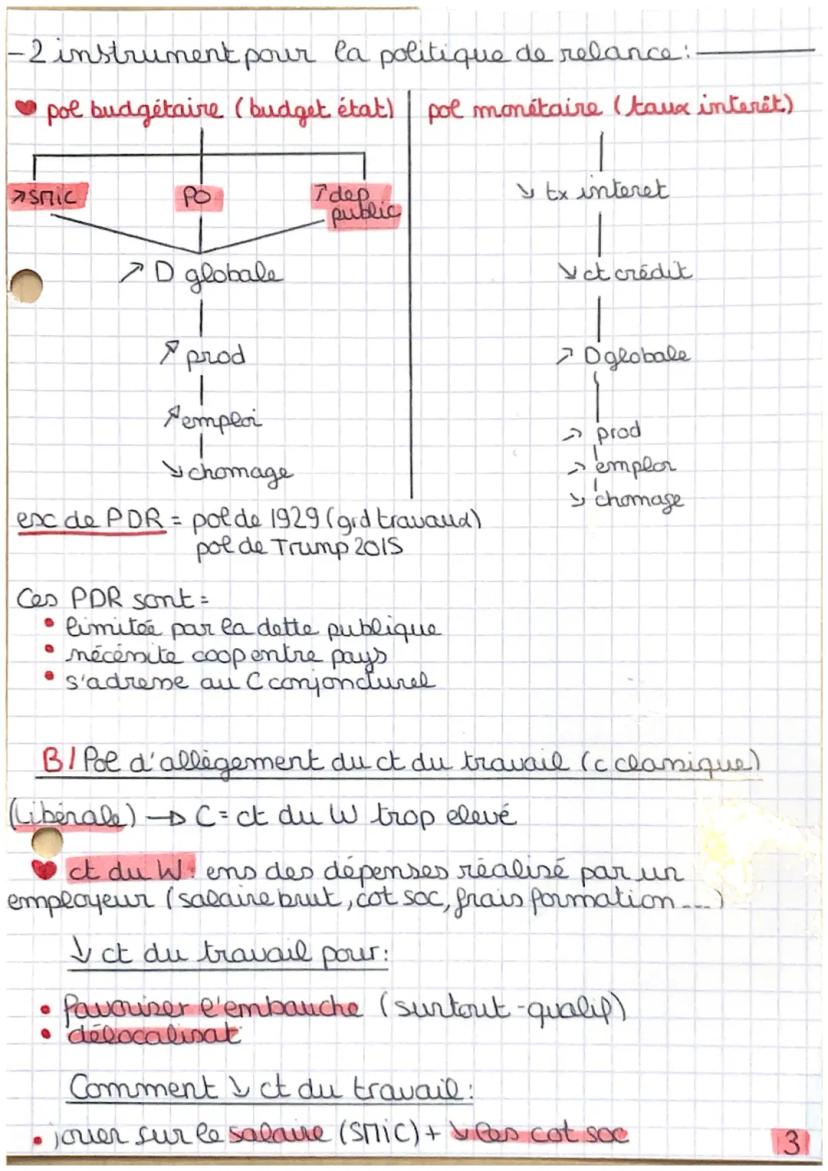 - 2 instrument pour la politique de relance :
♥ pol budgétaire (budget état)
↗ SMIC PO ↗ dep public
↗ D globale
↗ prod
↗ emploi
↘ chomage
pol monétaire (taux interêt)
↘ tx interet
↘ ct crédit
↗ D globale
↗ prod
↗ emploi
↘ chomage
exc de PDR = pol de 1929 (grd travaud)
pol de Trump 2015
Ces PDR sont =
• limitée par la dette publique
• nécéssite coop entre pays
• s'adresse au C conjoncturel
B/ Pol d'allègement du ct du travail (c classique)
(Libérale) → C = ct du W trop elevé
♥ ct du W : ens des dépenses réalisé par un
employeur (salaire brut, cot soc, frais formation ...)
↓ ct du travail pour :
• favoriser l'embauche (surtout - qualif)
• délocalisat°
Comment ↘ ct du travail :
• jouer sur le salaire (SMIC) + ↘ les cot soc
3